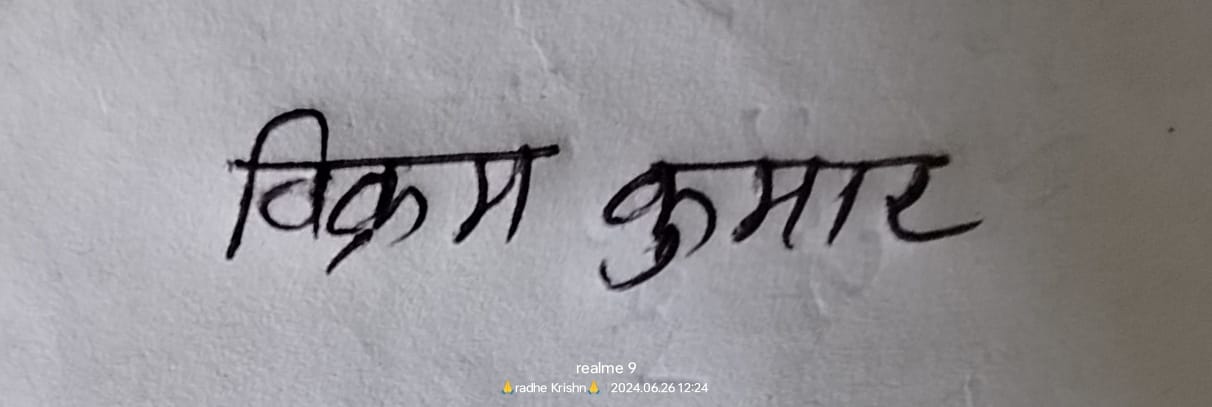 विक्रम कुमार
realme 9
🙏radhe Krishn🙏 2024.06.26 12:24